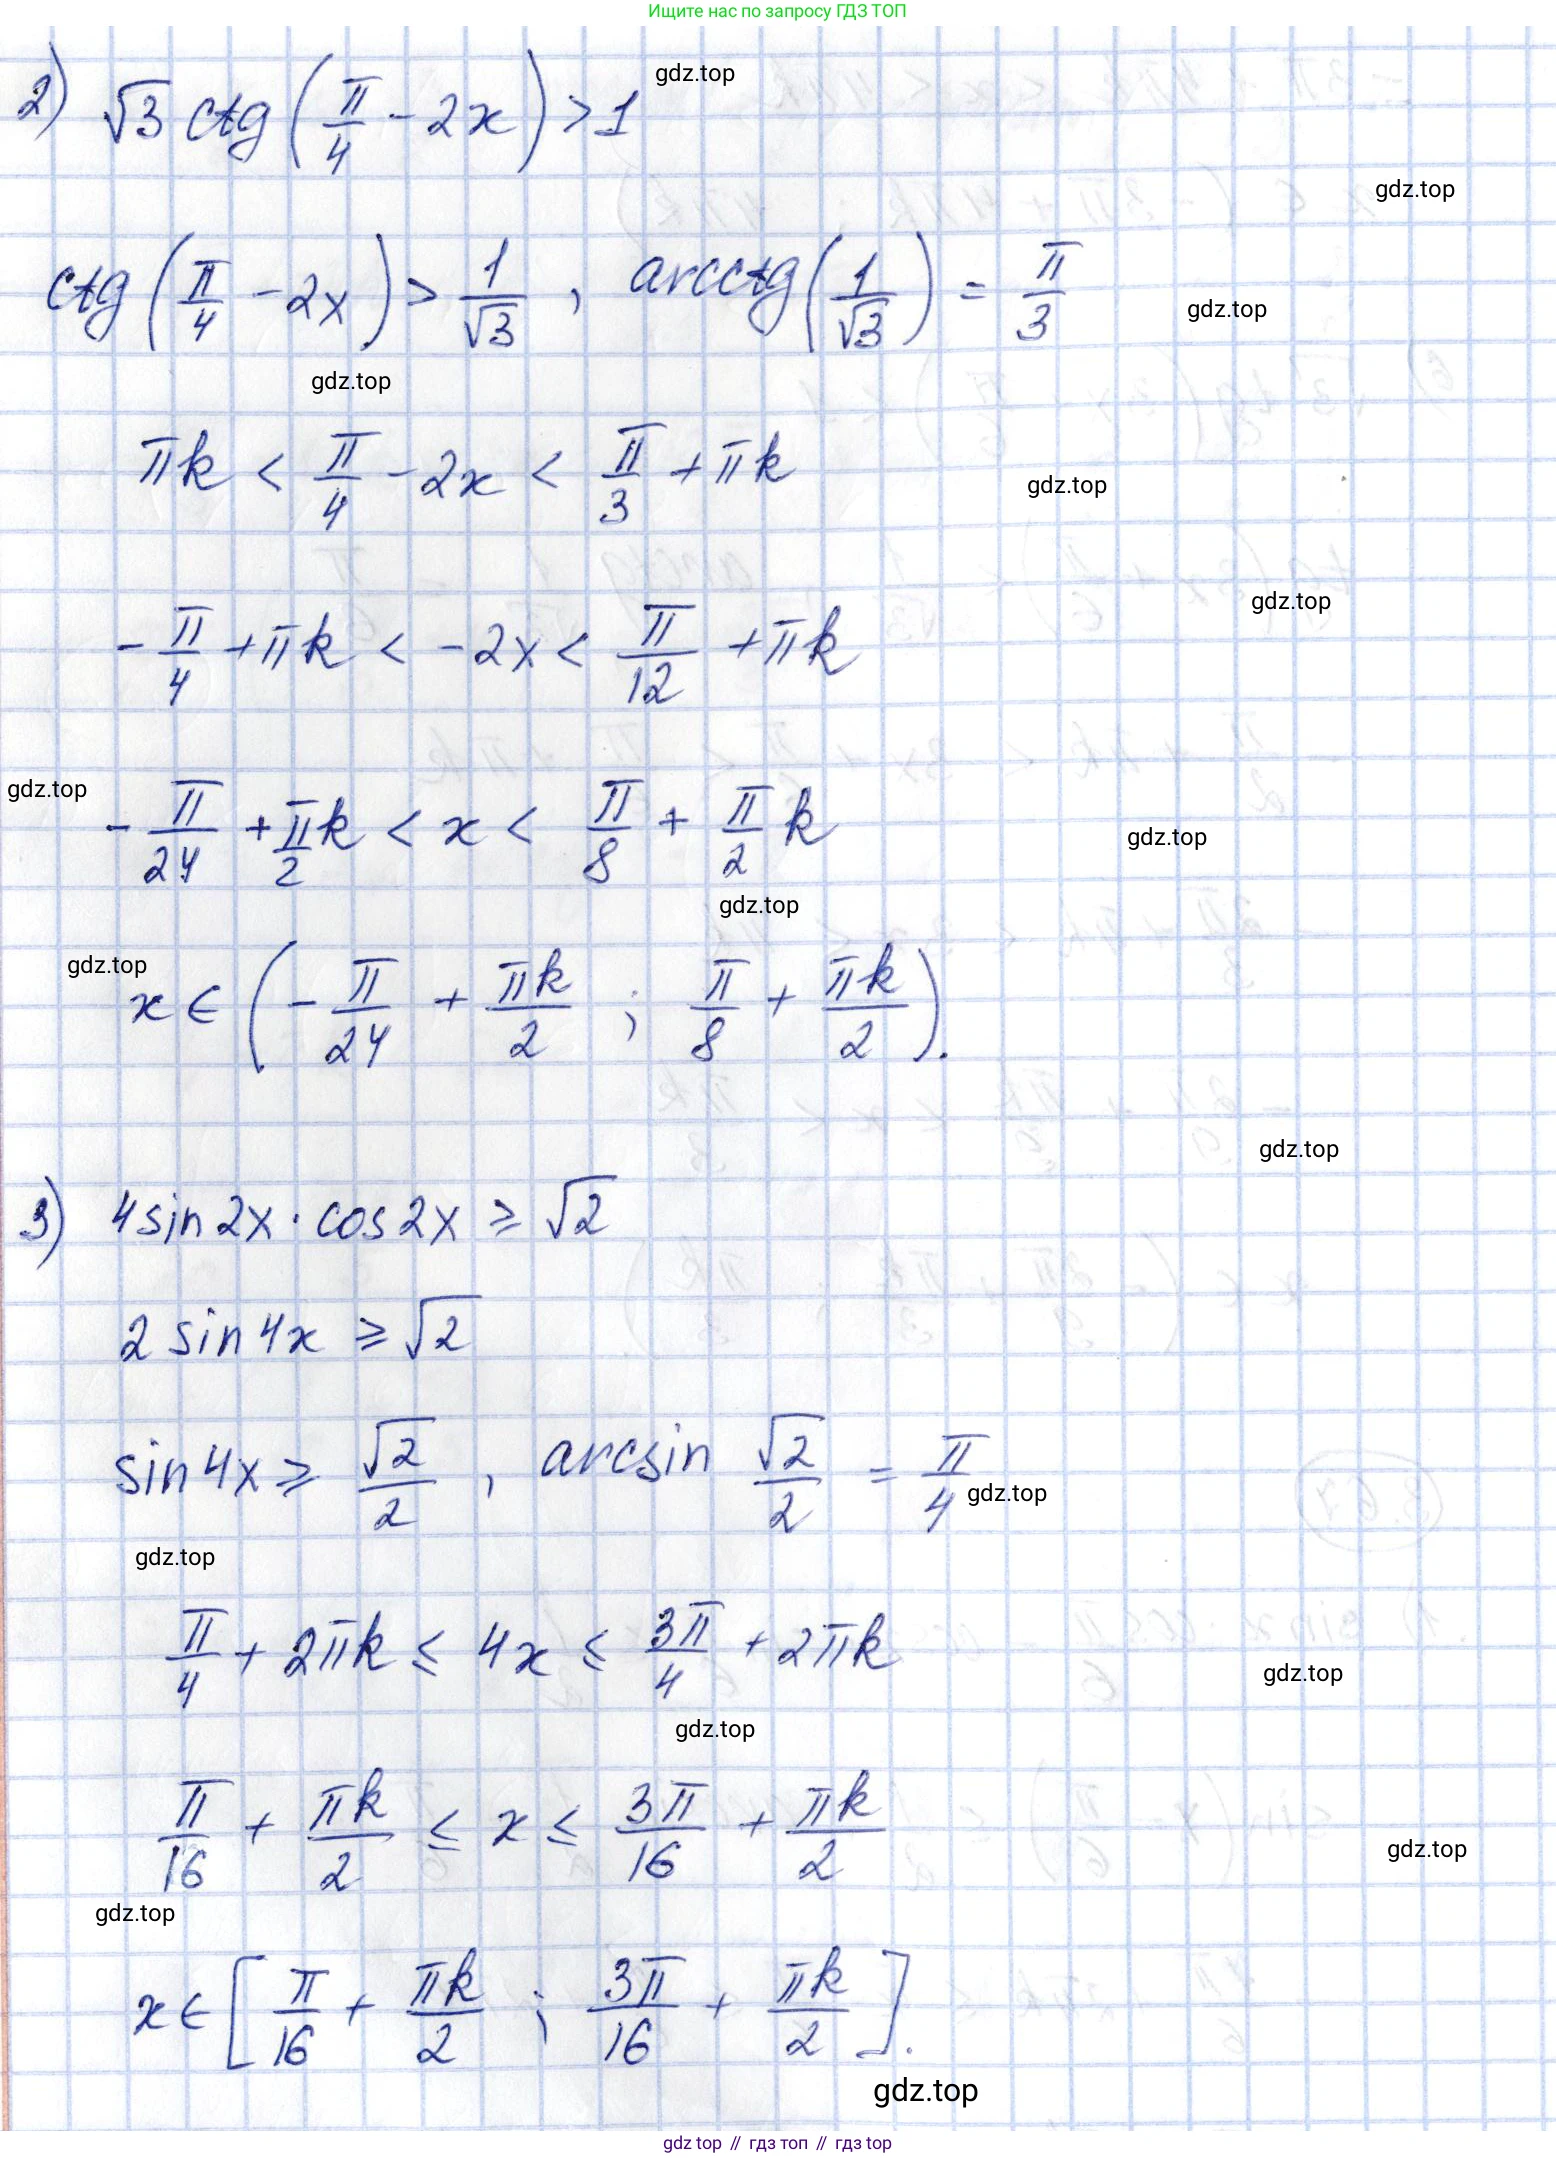 Ищите нас по запросу ГДЗ ТОП
2) √3 ctg(π/4 - 2x) > 1
gdz.top
gdz.top
ctg(π/4 - 2x) > 1/√3 , arcctg(1/√3) = π/3
gdz.top
gdz.top
πk < π/4 - 2x < π/3 + πk
gdz.top
gdz.top
-π/4 + πk < -2x < π/12 + πk
gdz.top
-π/24 + π/2 k < x < π/8 + π/2 k
gdz.top
gdz.top
gdz.top
x ∈ (-π/24 + πk/2 ; π/8 + πk/2).
gdz.top
3) 4 sin 2x · cos 2x ≥ √2
2 sin 4x ≥ √2
sin 4x ≥ √2/2 , arcsin √2/2 = π/4
gdz.top
gdz.top
π/4 + 2πk ≤ 4x ≤ 3π/4 + 2πk
gdz.top
gdz.top
π/16 + πk/2 ≤ x ≤ 3π/16 + πk/2
gdz.top
gdz.top
x ∈ [π/16 + πk/2 ; 3π/16 + πk/2].
gdz.top
gdz top // гдз топ // гдз top